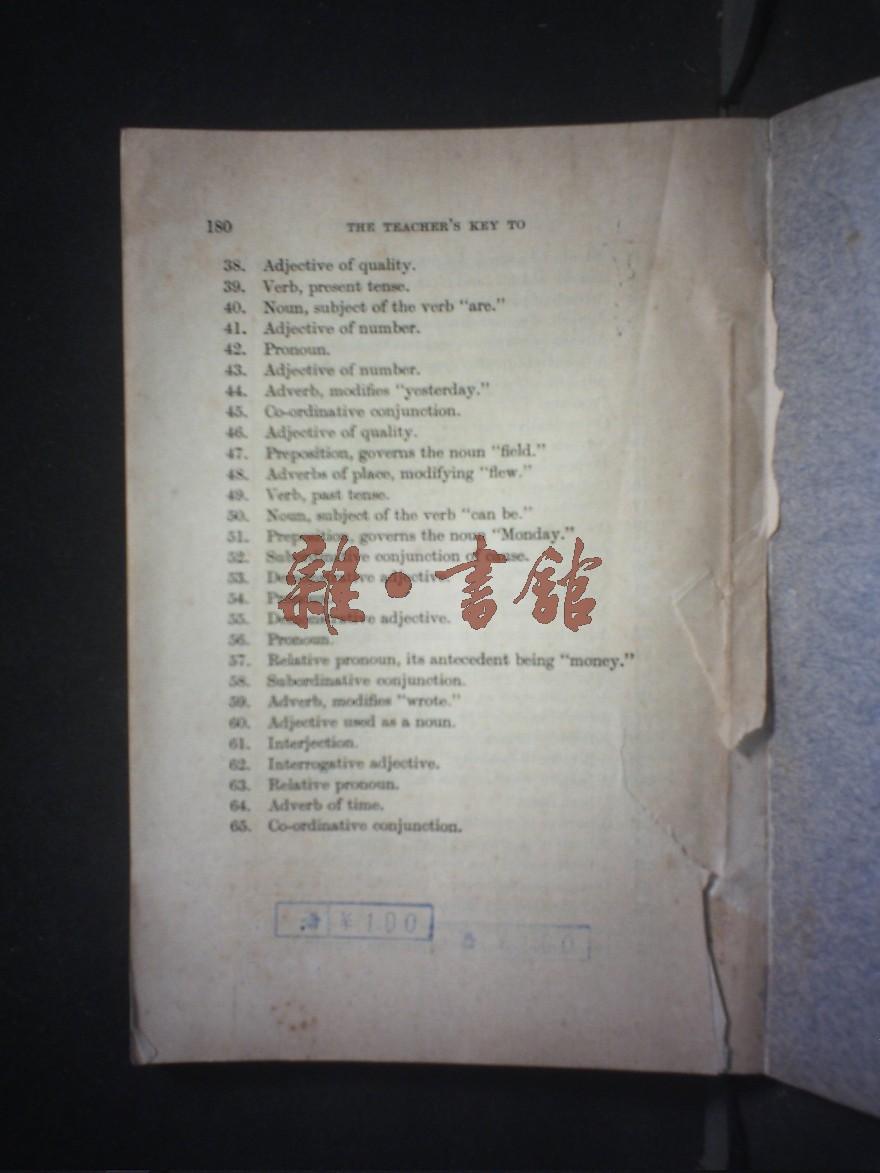 180
THE TEACHER'S KEY TO
38. Adjective of quality.
39. Verb, present tense.
40. Noun, subject of the verb "are."
41. Adjective of number.
42. Pronoun.
43. Adjective of number.
44. Adverb, modifies "yesterday."
45. Co-ordinative conjunction.
46. Adjective of quality.
47. Preposition, governs the noun "field."
48. Adverbs of place, modifying "flew."
49. Verb, past tense.
50. Noun, subject of the verb "can be."
51. Preposition, governs the noun "Monday."
52. Subordinative conjunction of cause.
53. adjective.
54.
55. adjective.
56. Pronoun.
57. Relative pronoun, its antecedent being "money."
58. Subordinative conjunction.
59. Adverb, modifies "wrote."
60. Adjective used as a noun.
61. Interjection.
62. Interrogative adjective.
63. Relative pronoun.
64. Adverb of time.
65. Co-ordinative conjunction.
雜·書館
¥1.00